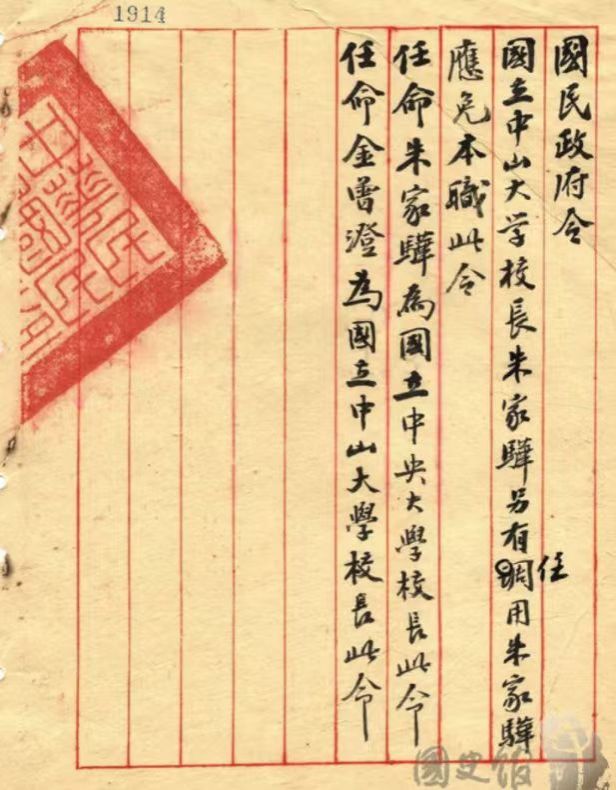 1914
國民政府令
國立中山大学校長朱家驊另有調用朱家驊
任
應免本職此令
任命朱家驊為國立中央大學校長此令
任命金曾澄為國立中山大學校長此令
國史館